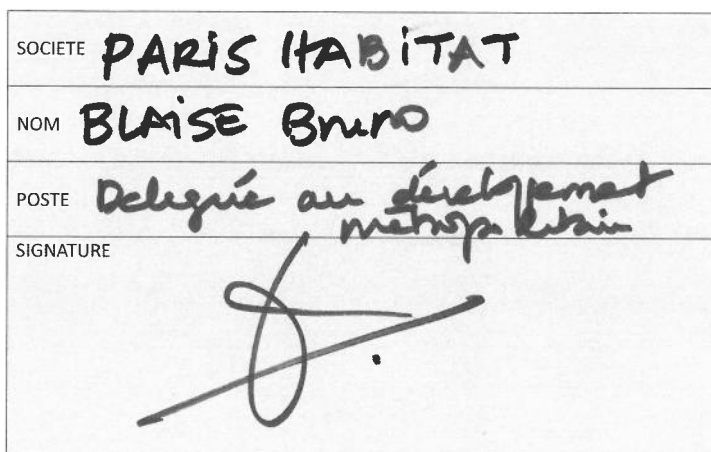 SOCIETE PARIS HABITAT
NOM BLAISE Bruno
POSTE Delegué au développement
métropolitain
SIGNATURE